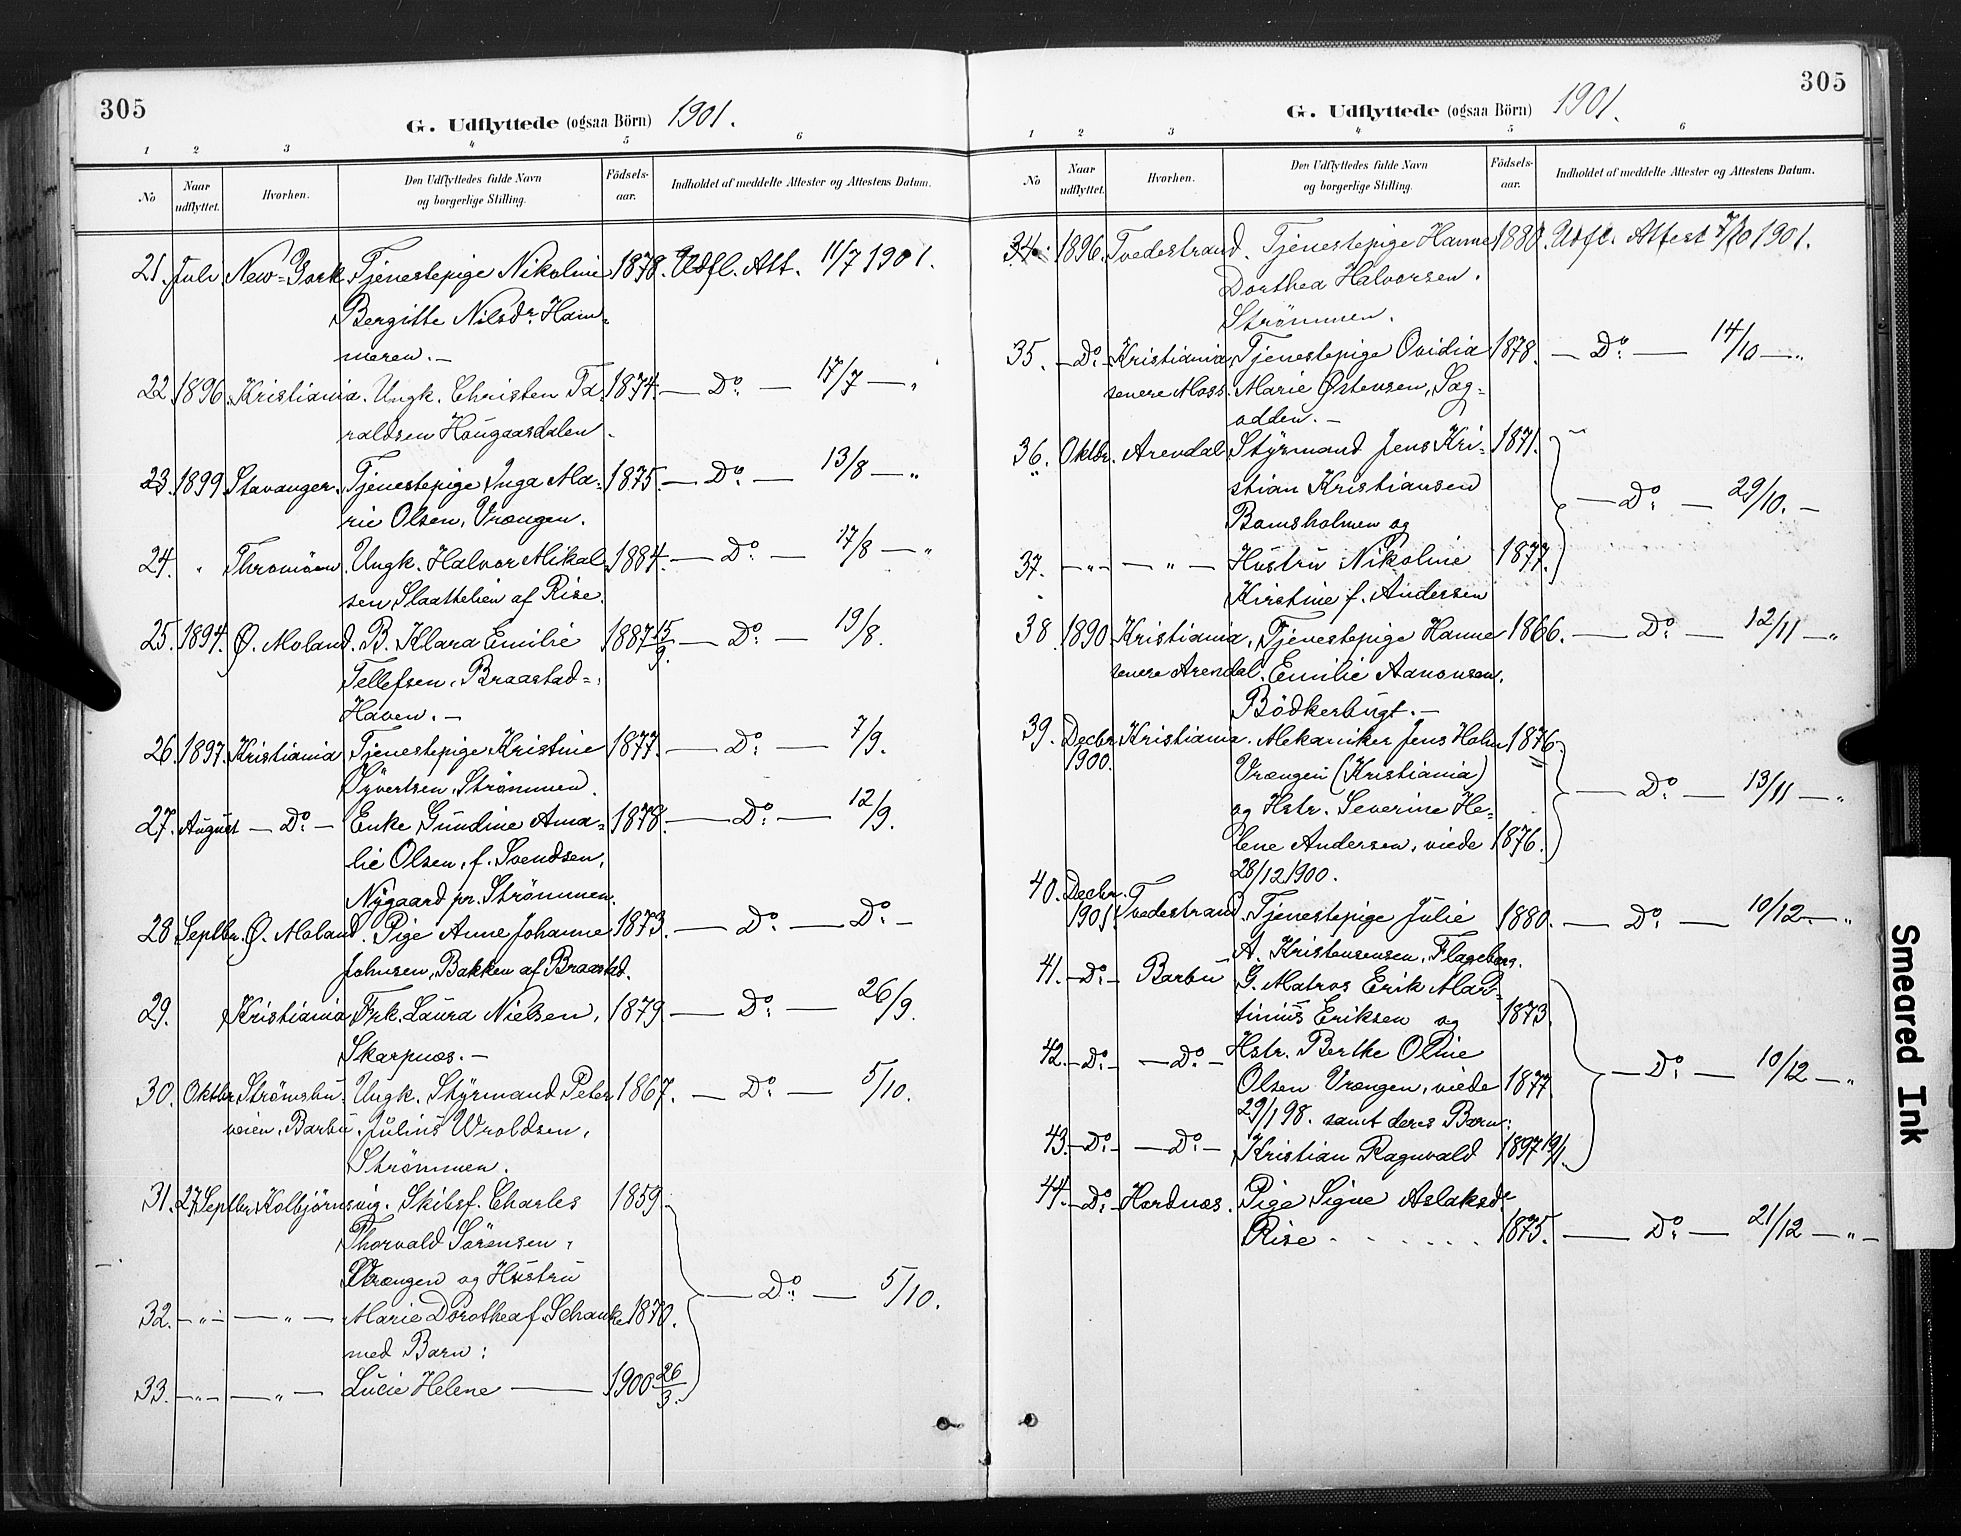 305
G. Udflyttede (ogsaa Börn) 1901.
1 2 3 4 5 6
No Naar udflyttet. Hvorhen. Den Udflyttedes fulde Navn og borgerlige Stilling. Födsels-aar. Indholdet af meddelte Attester og Attestens Datum.
21. Juli. New-York Tjenestepige Nikoline 1878. Udfl. Att. 11/7 1901.
Bergitte Nilsdr. Ham-
meren.-
22. 1896. Kristiania. Ungk. Christen Ta- 1874. — Do. — 17/7 — "
raldsen Hougaasdalen.
23. 1899 Stavanger. Tjenestepige Inga Ma- 1875. — Do. — 13/8 — "
rie Olsen, Vrængen.
24. " Thromöen. Ungk. Halvor Mikal- 1884. — Do. — 17/8 — "
sen Slaattelien af Rise.
25. 1894. Ø. Moland. B. Klara Emilie 1887 15/9. — Do. — 19/8.
Tellefsen, Braastad-
Haven.-
26. 1897. Kristiania Tjenestepige Kristine 1877. — Do. — 7/9.
Øyvertsen, Strømmen.
27. August — Do. — Enke Gundine Ama- 1878. — Do. — 12/9.
lie Olsen, f. Svendsen,
Nygaard pr. Strømmen.
28. Septbr. Ø. Moland. Pige Anne Johanne 1873. — Do. — Do. —
Johnsen, Bakken af Braastad.
29. Kristiania, Frk. Laura Nielsen, 1879. — Do. — 26/9.
Skarpnæs.-
30. Oktbr Strømsbu- Ungk. Styrmand Peter 1867. — Do. — 5/10.
veien, Barbu. Julius Wroldsen,
Strømmen.
31. 27 Septbr. Kolbjörnsvig. Skibsf. Charles 1859.
Thorvald Sørensen,
Vrængen og Hustru
32. — " — — " — Marie Dorothea f. Schanke 1870. — Do. — 5/10.
med Barn:
33. — " — — " — Lucie Helene — 1900 26/3.
305
G. Udflyttede (ogsaa Börn) 1901.
1 2 3 4 5 6
No Naar udflyttet. Hvorhen. Den Udflyttedes fulde Navn og borgerlige Stilling. Födsels-aar. Indholdet af meddelte Attester og Attestens Datum.
34. 1896. Tvedestrand. Tjenestepige Hanne 1880. Udfl. Attest 7/10 1901.
Dorthea Halvorsen.
Strømmen.
35. — Do. Kristiania, Tjenestepige Ovidia 1878. — Do. — 14/10 — "
senere Moss. Marie Østensen, Sag-
odden.-
36. Oktbr. Arendal. Styrmand Jens Kri- 1871.
stian Kristiansen — Do. — 29/10. —
Bomsholmen og
37. — " — — " — Hustru Nikoline 1877.
Kirstine f. Andersen
38 1890 Kristiania, Tjenestepige Hanne 1866. — Do. — 12/11 — "
senere Arendal. Emilie Aanonsen.
Bödkerbugt.-
39. Decbr 1900. Kristiania. Mekaniker Jens Holm 1876
Vrængen (Kristiania) — Do. — 13/11 — "
og Hstr. Severine He-
lene Andersen, viede 1876.
28/12 1900.
40. Decbr. 1901. Tvedestrand. Tjenestepige Julie 1880. — Do. — 10/12 — "
A. Kristensensen, Flageborg.
41. — Do. — Barbu G. Matros Erik Mar-
tinius Eriksen og 1873.
42. — Do. — — Do. — Hstr. Berthe Oline — Do. — 10/12 — "
Olsen Vrængen, viede 1877.
29/1 98. samt deres Barn:
43. — Do. — — Do. — Kristian Ragnvald 1897 19/1.
44. — Do. — Herdnæs. Pige Signe Aslaksdr.
Rise . . . . . . 1875. — Do. — 21/12 — " —
Smeared Ink